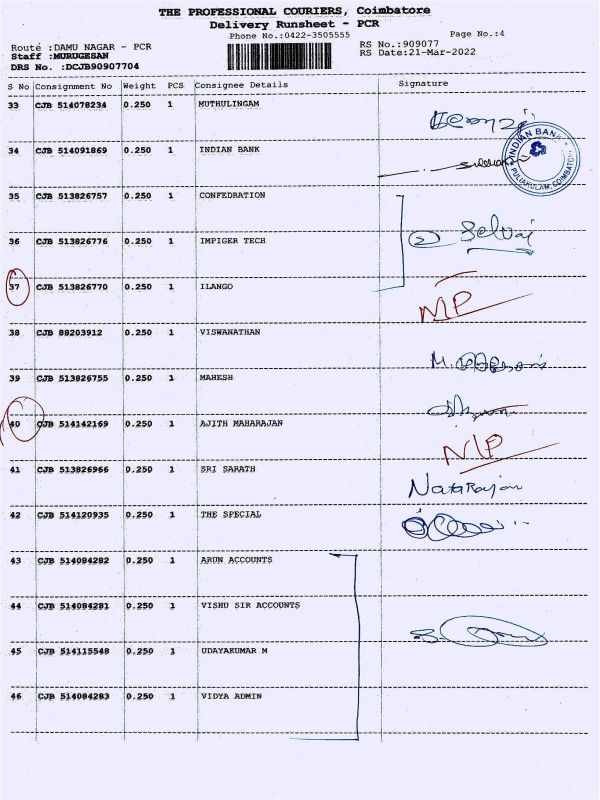 THE PROFESSIONAL COURIERS, Coimbatore
Delivery Runsheet - PCR
Phone No.:0422-3505555
Page No.:4
Route :DAMU NAGAR - PCR
RS No.:909077
Staff :MURUGESAN
RS Date:21-Mar-2022
DRS No. :DCJB90907704
S No Consignment No Weight PCS Consignee Details Signature
33 CJB 514078234 0.250 1 MUTHULINGAM
34 CJB 514091869 0.250 1 INDIAN BANK
INDIAN BANK
PULIAKULAM, COIMBATORE
35 CJB 513826757 0.250 1 CONFEDRATION
36 CJB 513826776 0.250 1 IMPIGER TECH
Selvaj
37 CJB 513826770 0.250 1 ILANGO
N/P
38 CJB 88203912 0.250 1 VISWANATHAN
39 CJB 513826755 0.250 1 MAHESH
40 CJB 514142169 0.250 1 AJITH MAHARAJAN
N/P
41 CJB 513826966 0.250 1 SRI SARATH
Natarajan
42 CJB 514120935 0.250 1 THE SPECIAL
43 CJB 514084282 0.250 1 ARUN ACCOUNTS
44 CJB 514084281 0.250 1 VISHU SIR ACCOUNTS
45 CJB 514115548 0.250 1 UDAYAKUMAR M
46 CJB 514084283 0.250 1 VIDYA ADMIN